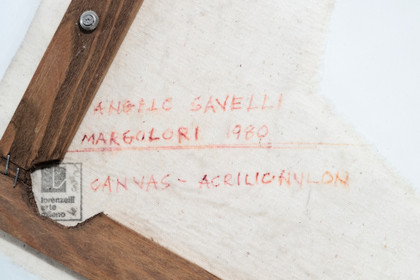 ANGELO SAVELLI
MARGOLORI 1980
CANVAS - ACRILICNYLON
lorenzelli
arte
milano